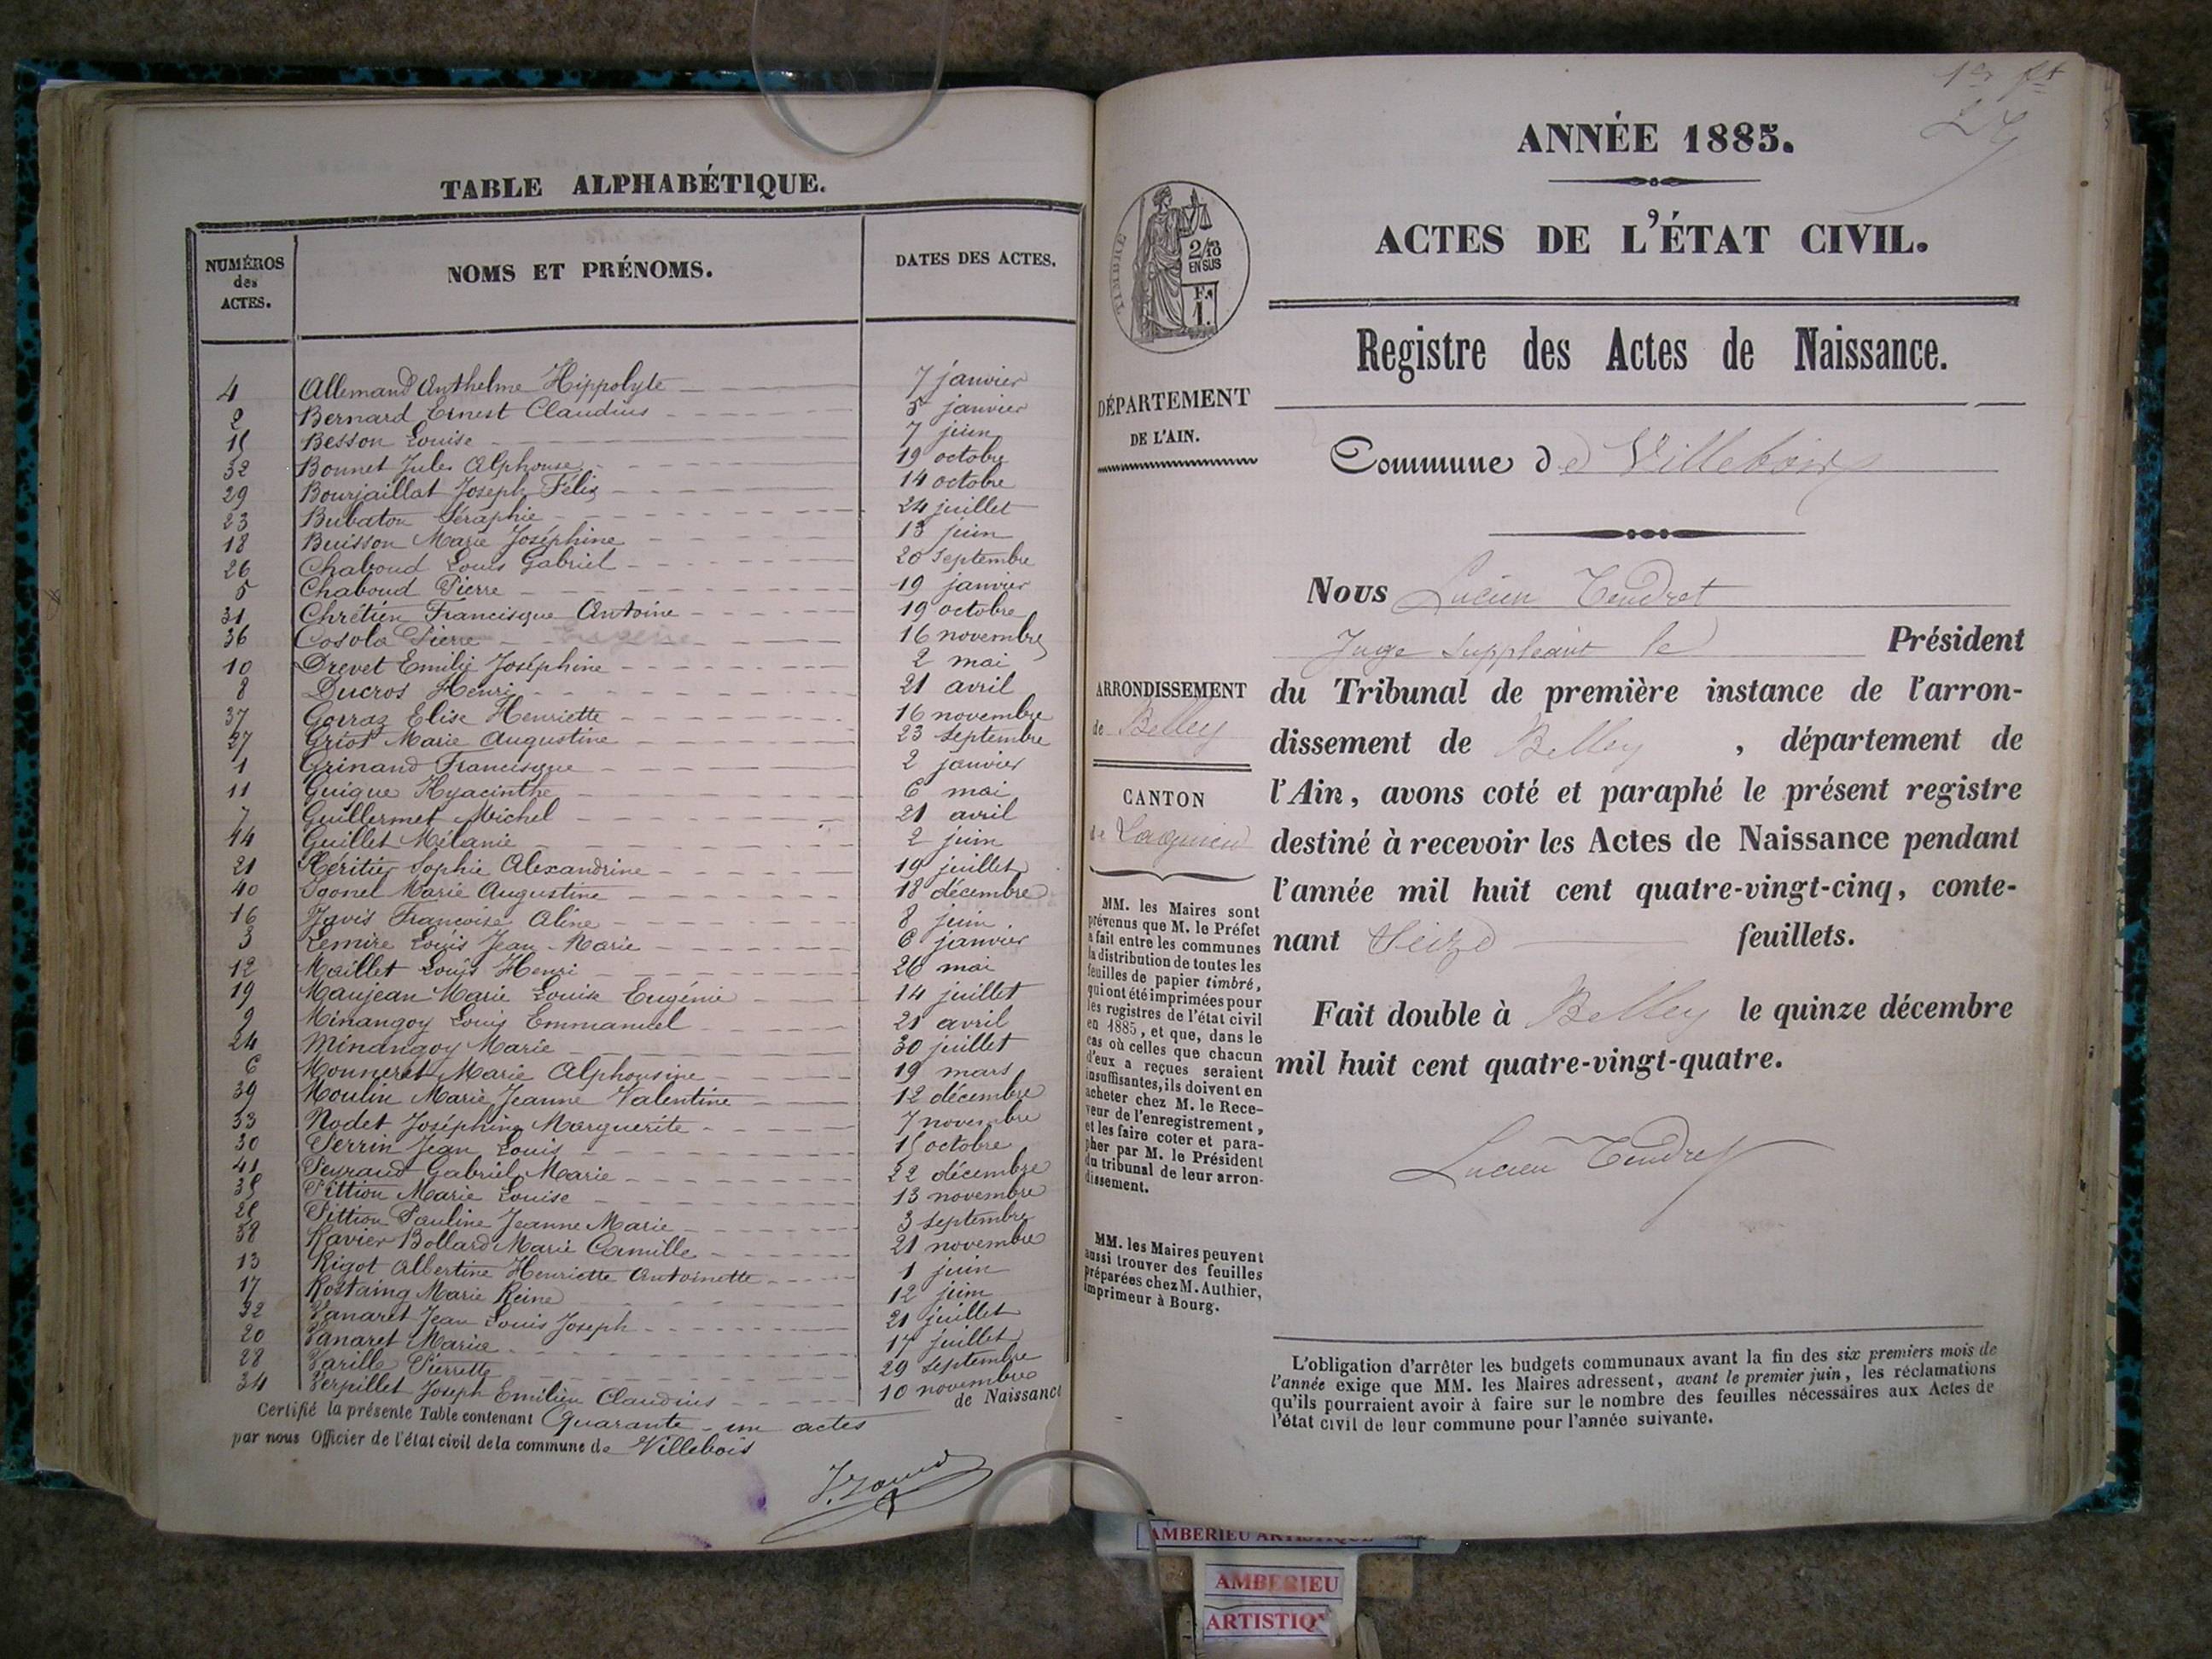 TABLE ALPHABÉTIQUE.
NUMÉROS des ACTES. NOMS ET PRÉNOMS. DATES DES ACTES.
4 Allemand Anthelme Hippolyte 7 janvier
2 Bernard Ernest Claudius 5 janvier
15 Besson Louise 7 juin
32 Bonnet Jules Alphonse 19 octobre
29 Bourjaillat Joseph Félix 14 octobre
23 Bubaton Séraphie 24 juillet
18 Buisson Marie Joséphine 13 juin
26 Chaboud Louis Gabriel 20 Septembre
5 Chaboud Pierre 19 janvier
31 Chrétien Francisque Antoine 19 octobre
36 Cosola Pierre 16 novembre
10 Drevet Emilie Joséphine 2 mai
8 Ducros Henri 21 avril
37 Gorraz Elise Henriette 16 novembre
27 Griot Marie Augustine 23 Septembre
1 Grinand Francisque 2 janvier
11 Guigue Hyacinthe 6 mai
7 Guillermet Michel 21 avril
14 Guillet Mélanie 2 juin
21 Héritier Sophie Alexandrine 19 juillet
40 Marie Augustine 18 décembre
16 Françoise Aline 8 juin
3 Lemire Louis Jean-Marie 6 janvier
12 Maillet Louis Henri 26 mai
19 Maujean Marie Louise Eugénie 14 juillet
9 Minangoy Louis Emmanuel 21 avril
24 Minangoy Marie 30 juillet
6 Monneret Marie Alphonsine 19 mars
39 Moulin Marie Jeanne Valentine 12 décembre
33 Nodet Joséphine Marguerite 7 novembre
30 Perrin Jean Louis 15 octobre
41 Peyraud Gabriel Marie 22 décembre
35 Pittion Marie Louise 13 novembre
25 Pittion Pauline Jeanne Marie 3 Septembre
38 Ravier Bollard Marie Camille 21 novembre
13 Rigot Albertine Henriette Antoinette 1 juin
17 Rostaing Marie Reine 12 juin
22 Vanaret Jean Louis Joseph 21 juillet
20 Vanaret Maria 17 juillet
28 Varille Pierrette 29 Septembre
34 Verpillet Joseph Emilien Claudius 10 novembre
Certifié la présente Table contenant Quarante-un actes de Naissance
par nous Officier de l'état civil de la commune de Villebois
1er ft
ANNÉE 1885.
ACTES DE L'ÉTAT CIVIL.
TIMBRE
2/10
EN SUS
F.
1.
Registre des Actes de Naissance.
DÉPARTEMENT
DE L'AIN.
Commune de Villebois
Nous Lucien Tendret
Juge Suppléant le Président
ARRONDISSEMENT
de Belley
du Tribunal de première instance de l'arron-
dissement de Belley, département de
l'Ain, avons coté et paraphé le présent registre
destiné à recevoir les Actes de Naissance pendant
l'année mil huit cent quatre-vingt-cinq, conte-
nant Seize feuillets.
CANTON
de Lagnieu
MM. les Maires sont
prévenus que M. le Préfet
a fait entre les communes
la distribution de toutes les
feuilles de papier timbré,
qui ont été imprimées pour
les registres de l'état civil
en 1885, et que, dans le
cas où celles que chacun
d'eux a reçues seraient
insuffisantes, ils doivent en
acheter chez M. le Rece-
veur de l'enregistrement,
et les faire coter et para-
pher par M. le Président
du tribunal de leur arron-
dissement.
Fait double à Belley le quinze décembre
mil huit cent quatre-vingt-quatre.
Lucien Tendret
MM. les Maires peuvent
aussi trouver des feuilles
préparées chez M. Authier,
imprimeur à Bourg.
L'obligation d'arrêter les budgets communaux avant la fin des six premiers mois de
l'année exige que MM. les Maires adressent, avant le premier juin, les réclamations
qu'ils pourraient avoir à faire sur le nombre des feuilles nécessaires aux Actes de
l'état civil de leur commune pour l'année suivante.
AMBERIEU ARTISTIQUE
AMBERIEU
ARTISTIQ